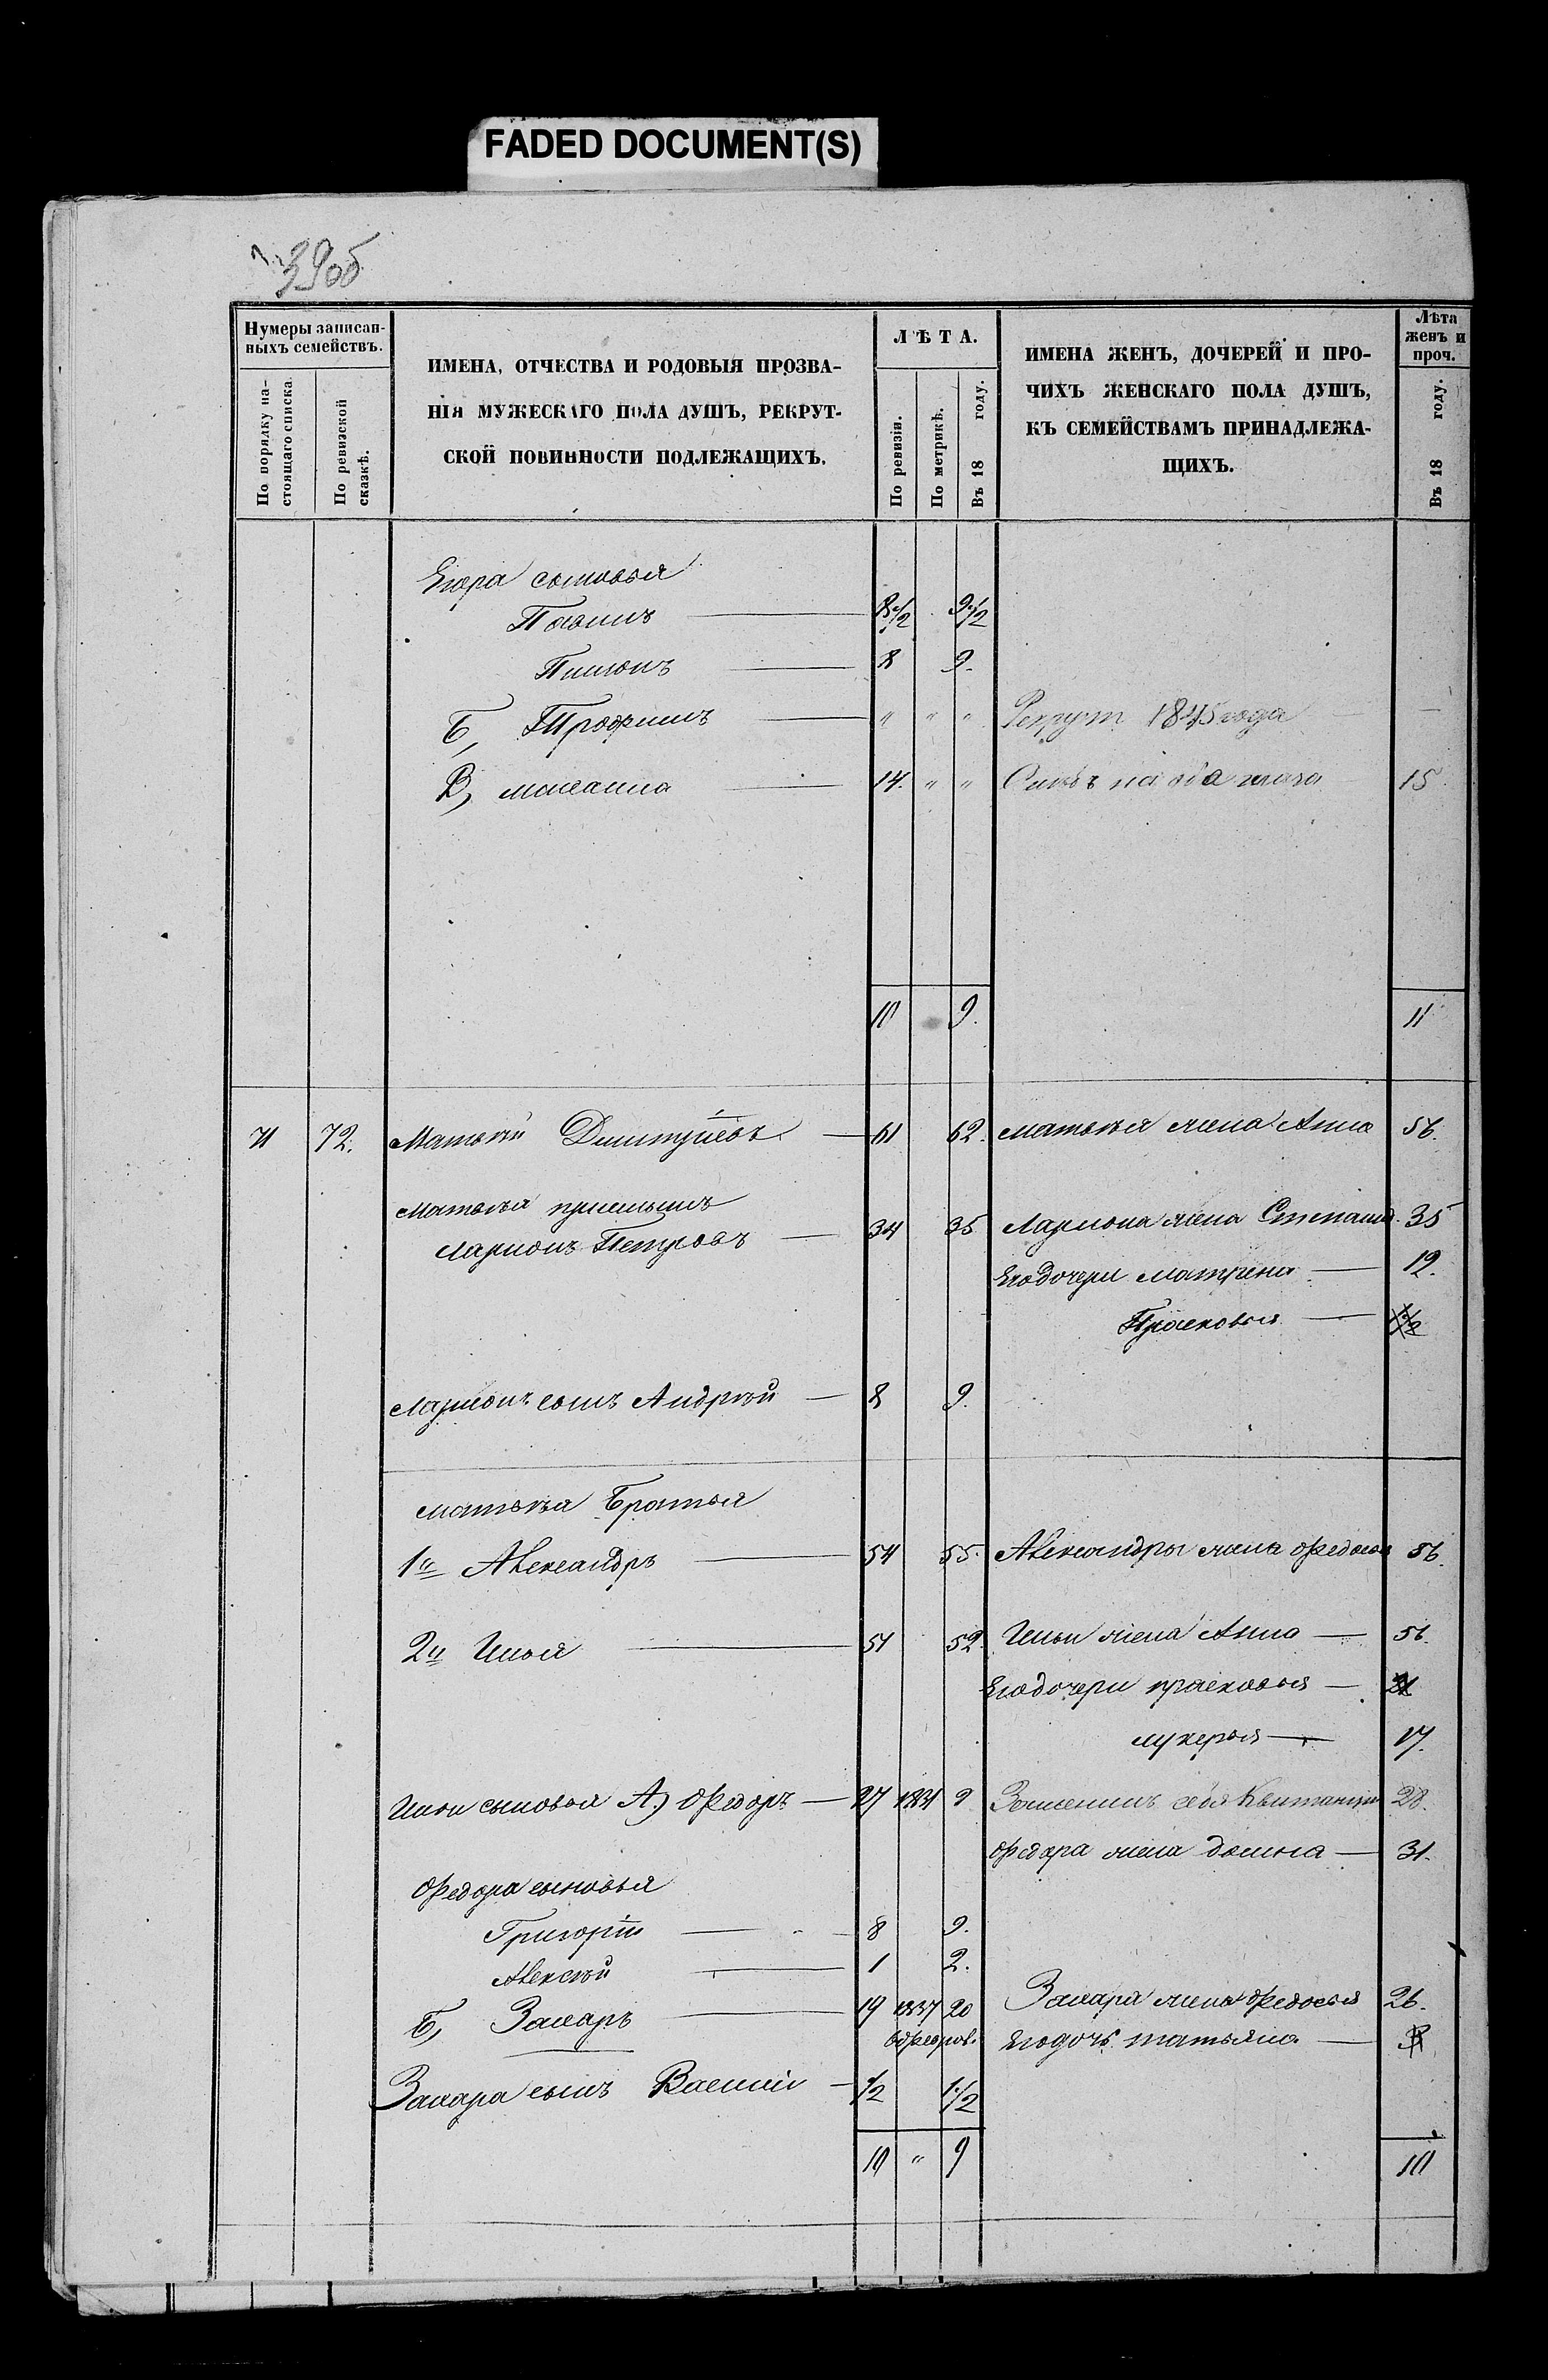 FADED DOCUMENT(S)
39об
Нумеры записан-
ныхъ семействъ.
По порядку на-
стоящаго списка.
По ревизской
сказкѣ.
ИМЕНА, ОТЧЕСТВА И РОДОВЫЯ ПРОЗВА-
НІЯ МУЖЕСКАГО ПОЛА ДУШЪ, РЕКРУТ-
СКОЙ ПОВИННОСТИ ПОДЛЕЖАЩИХЪ.
ЛѢТА.
По ревизіи.
По метрикѣ.
Въ 18 году.
ИМЕНА ЖЕНЪ, ДОЧЕРЕЙ И ПРО-
ЧИХЪ ЖЕНСКАГО ПОЛА ДУШЪ,
КЪ СЕМЕЙСТВАМЪ ПРИНАДЛЕЖА-
ЩИХЪ.
Лѣта
женъ и
проч.
Въ 18 году.
Егора сыновья
8 1/2 9 1/2
8 9.
Б, Трофимъ — " " " Рекрут 1845 года —
В, 14. " " на оба глаза 15
10 9. 11
71 72. Матвѣй Дмитріевъ — 61 62. Матвѣя жена Анна 56.
Матвѣя приемышъ
Ларионъ Петровъ — 34 35 Лариона жена Степанид. 35
Его дочери Матрена — 12.
Прасковья —
Ларионъ сынъ Андрѣй — 8 9.
Матвѣя Братья
1й Александръ — 54 55. Александры жена Федосья 56.
2й Илья — 51 52. Ильи жена Анна — 51.
Его дочери прасковья — 21
лукерья — 17.
Ильи сыновья А) Федоръ — 27 1831 9 Заменилъ себя Квитанци 28.
Федора жена домна — 31.
Федора сыновья
Григорій — 8 9.
Алексѣй — 1 2.
Б, Захаръ — 19 1837 20 Захара жена Федосья 26.
6 феврал. Его дочь татьяна —
Захара сынъ Василій — 1/2 1 1/2
10 " 9 10